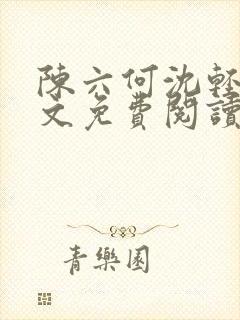 陳六何沈輕
文免費閱讀
青樂園